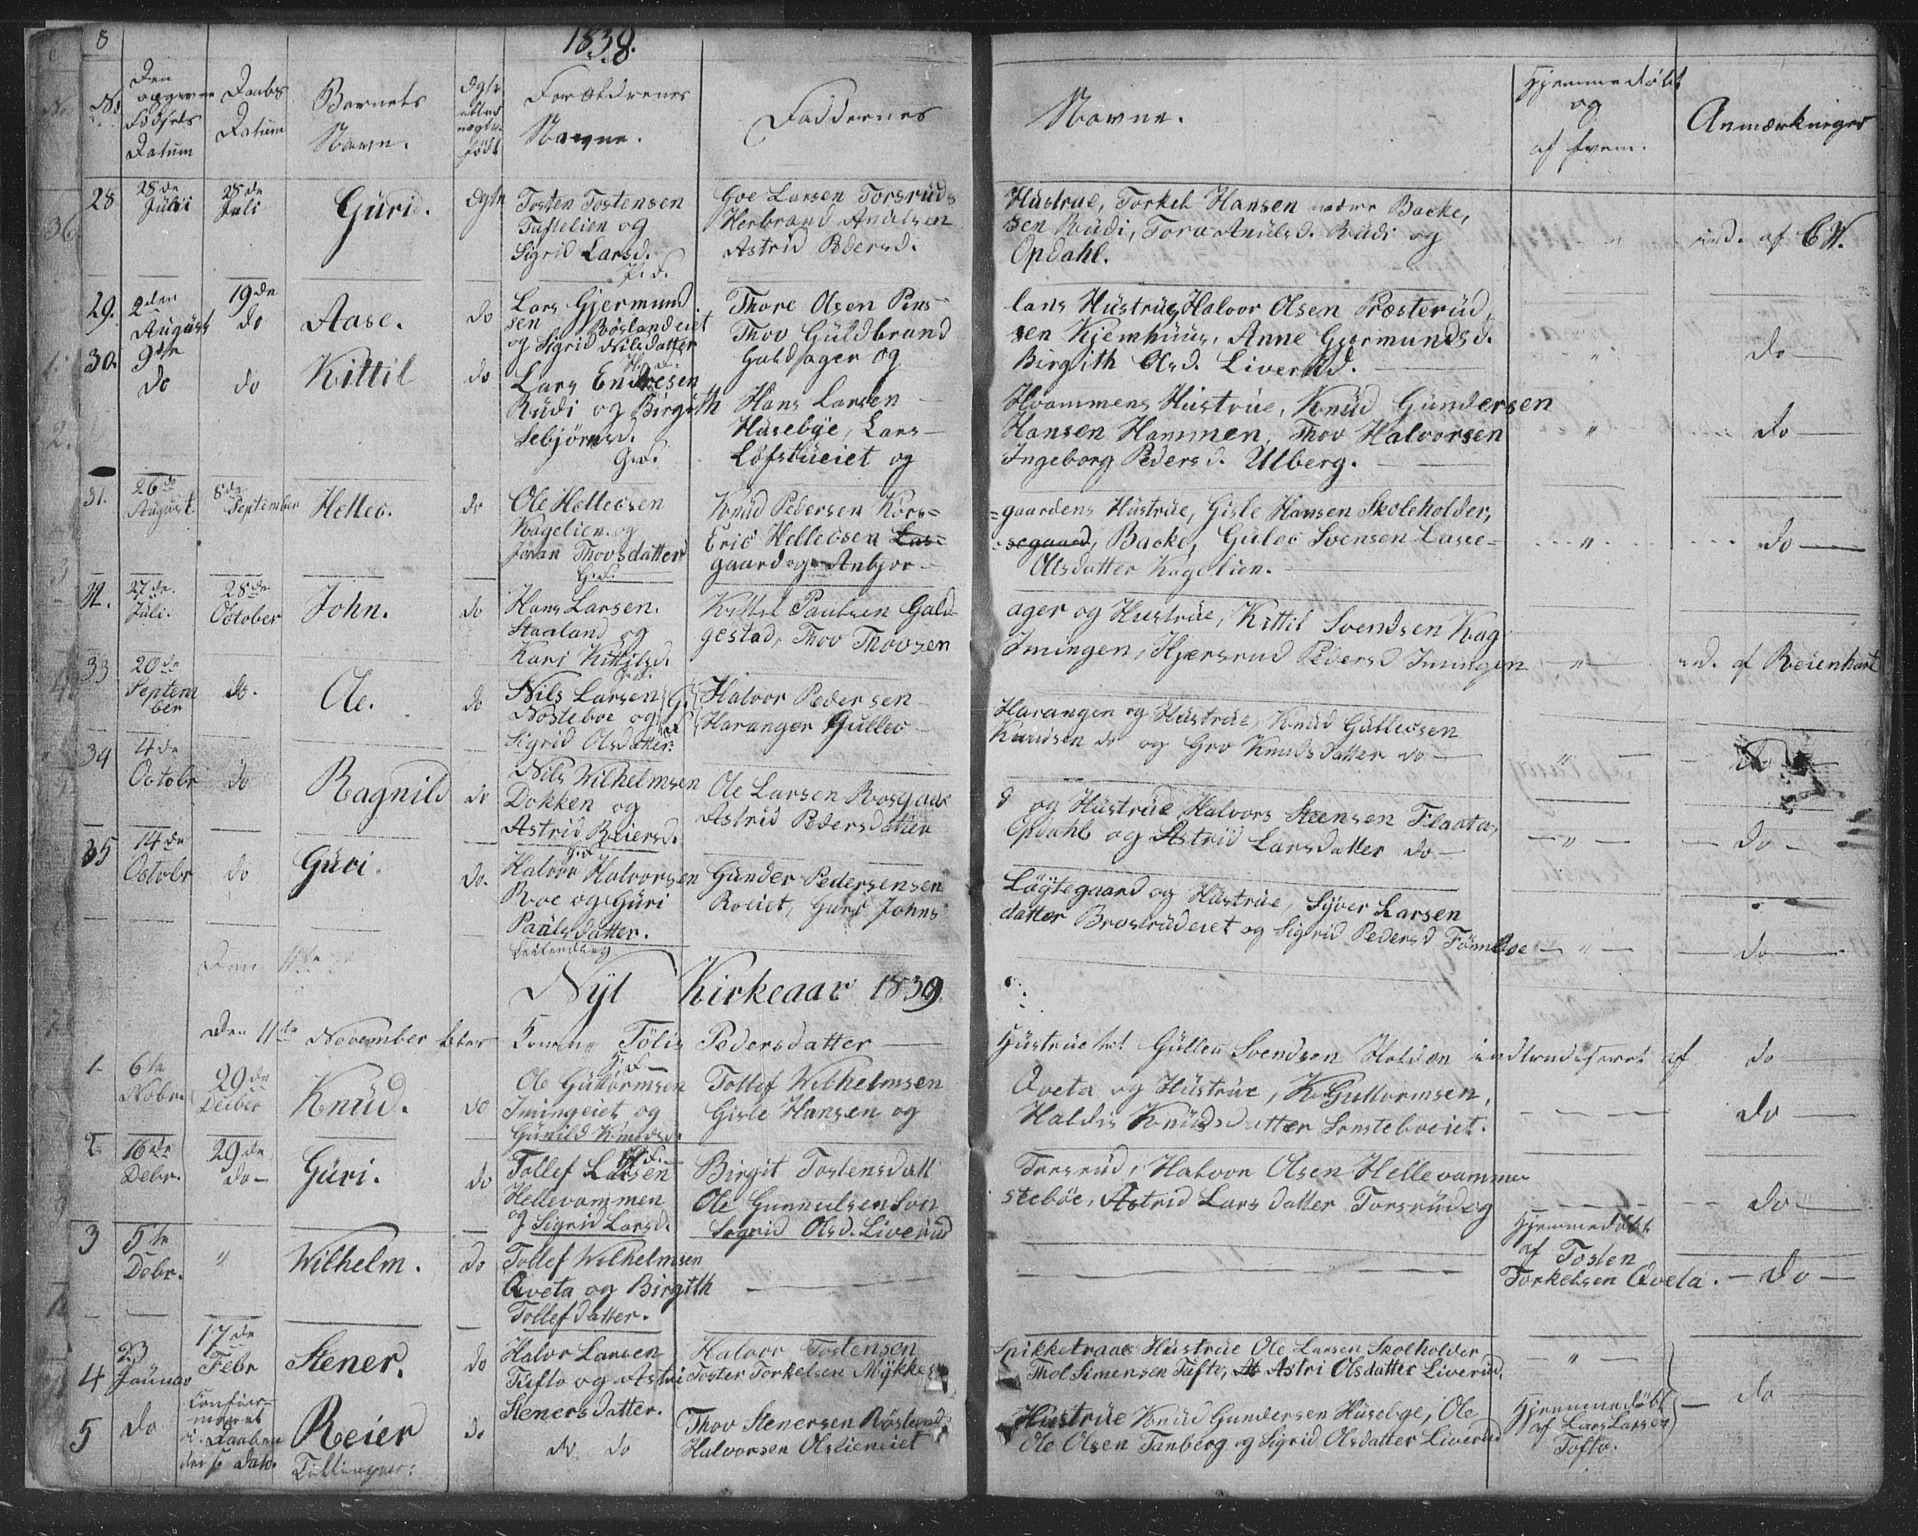 8
1838.
No.
Den
opgivne
Fødsels
Datum
Daabs
Datum
Barnets
Navn.
Forældrenes
Navne.
Faddernes
Navne.
Hjemmedøbt
og
af hvem.
Anmærkninger
28
28de
Julii
28de
Juli
Guri.
Tosten Tostensen
Tuftelien og
Sigrid Larsd.
Goe Larsen Torsrud
Herbrand Anulsen
Astrid Pedersd.
Hustrue, Torkel Hansen Backe,
sen Rudi, Tora Anulsd. Rudi og
Opdahl.
ind. af
29.
2den
August
19de
do
Aase.
do
Lars Gjermund
sen Røslandeiet
og Sigrid Nilsdatter
Thore Olsen Pens-
Thov Guldbrand
Goldsager og
lans Hustrue, Halvor Olsen Præsterud,
sen Kjemhuus, Anne Gjermundsd.
Birgith Olsd. Liverud.
do
30.
9de
do
do
Kittil
do
Lars Endresen
Rudi og Birgith
Sebjørnsd.
Hans Larsen
Husebye, Lars
Løfstueiet og
Hvammens Hustrue, Knud Gundersen
Hansen Hammen, Thov Halvorsen
Ingeborg Pedersd. Ulberg.
do
31.
26de
August.
8de
September
Helleo.
do
Ole Helleosen
Kagelien og
Jøran Thovsdatter
Knud Pedersen Kors=
Eric Helleosen Las=
gaard og Anbjør-
=gaardens Hustrue, Gisle Hansen Skoleholder,
=segaard, Backe, Guleo Svensen Lasse-
Olsdatter Kagelien.
do
27de
Juli.
28de
October
John.
do
Hans Larsen.
Staaland og
Kari Kittilsd.
Kittil Paulsen Gald
gestad, Thov Thovsen
ager og Hustrue, Kittil Svendsen Kag
Imingen, Kjersrud Pedersd Imingen
af Reienhart
33
20de
Septem
ber
do.
Ole.
do
Nils Larsen
Nosteboe og
Sigrid Olsdatter.
Halvor Pedersen
Haranger Gulleo
Harangen og Hustrue, Knud Gulleosen
Knudsen do og Gro Knudsdatter do
do
34
4de
Octobr
do
Ragnild
do
Nils Wilhelmsen
Dokken og
Astrid Reiersd.
Ole Larsen Rosgaar
Astrid Pedersdatter
d og Hustrue, Halvors Steensen Flaata,
Opdahl og Astrid Larsdatter do
do
35
14de
Octobr
do
Guri.
do.
Halvor Halvorsen
Roe og Guri
Paulsdatter.
Gunder Pedersensen
Roeiet, Guri Johns
Løgtegaard og Hustrue, Syver Larsen
datter Brostrudeiet og Sigrid Pedersd Fønneboe
do
Nyt Kirkeaar 1839.
Den 11te November blev
Tølis Pedersdatter
Hustrue til Gulleu Svendsen Holden introduceret af do
1
6te
Nobr.
29de
Deiber
Knud.
do
Ole Guttormsen
Imingeiet og
Gunild Knudsd.
Tollef Wilhelmsen
Gisle Hansen og
Qveta og Hustrue, K. Guttormsen,
Haldis Knudsdatter Sønsteboeiet.
do
2
16de
Debr.
29de
do
Guri.
do
Tollef Larsen
Hellevammen
og Sigrid Larsd.
Birgit Tostensdatt
Ole Gunnulsen Son
Sigrid Olsd. Liverud
Torsrud, Halvor Olsen Hellevamme
stebøe, Astrid Larsdatter Torsrud og
do
3
5te
Debr.
"
Wilhelm.
do
Tollef Wilhelmsen
Qveta og Birgith
Tollefdatter.
Hjemmedøbt
af Tosten
Torkelsen Qveta.
do
4
23
Januar
17de
Febr
Stener.
do
Halvor Larsen
Tufto og Astri
Stenersdatter.
Halvor Tostensen
Toster Torkelsen Mykke
Spikketraae Hustrue Ole Larsen Skolholder
Thol Simensen Tufto, Astri Olsdatter Liverud.
"
do
5
do
Reier
Tvillinger:
do
do do
Thov Stenersen Røsland
Halvorsen Olslieneiet
Hustrue Knud Gundersen Husebye, Ole
Ole Olsen Tanberg og Sigrid Olsdatter Liverud
Hjemmedøbt
af Lars Larsen
Tofto.